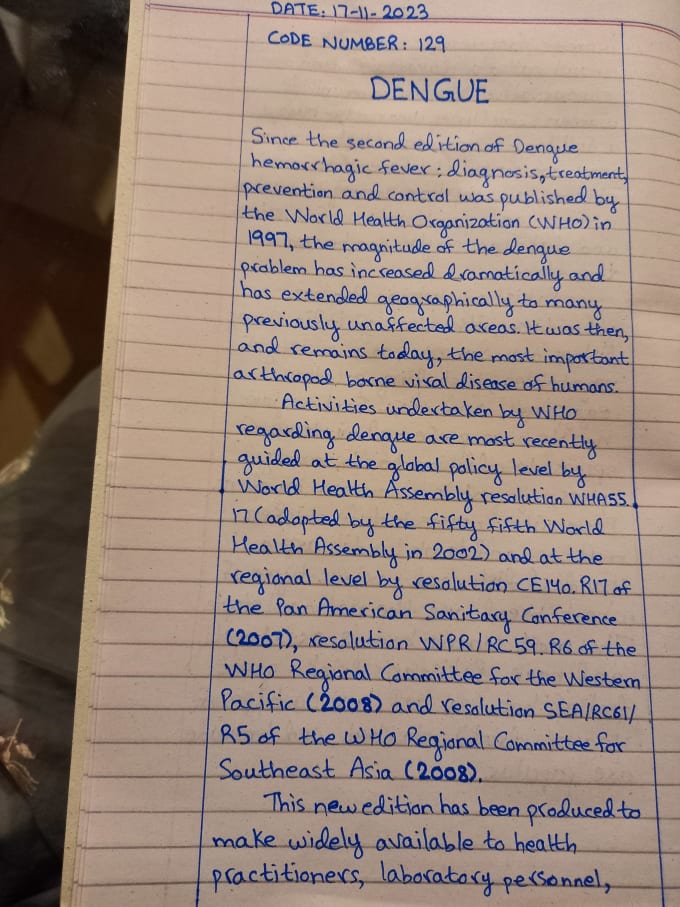 DATE: 17-11-2023
CODE NUMBER: 129
DENGUE
Since the second edition of Dengue
hemorrhagic fever: diagnosis, treatment,
prevention and control was published by
the World Health Organization (WHO) in
1997, the magnitude of the dengue
problem has increased dramatically and
has extended geographically to many
previously unaffected areas. It was then,
and remains today, the most important
arthropod borne viral disease of humans.
Activities undertaken by WHO
regarding dengue are most recently
guided at the global policy level by
World Health Assembly resolution WHA55.
17 (adopted by the fifty fifth World
Health Assembly in 2002) and at the
regional level by resolution CE140.R17 of
the Pan American Sanitary Conference
(2007), resolution WPR/RC59.R6 of the
WHO Regional Committee for the Western
Pacific (2008) and resolution SEA/RC61/
R5 of the WHO Regional Committee for
Southeast Asia (2008).
This new edition has been produced to
make widely available to health
practitioners, laboratory personnel,